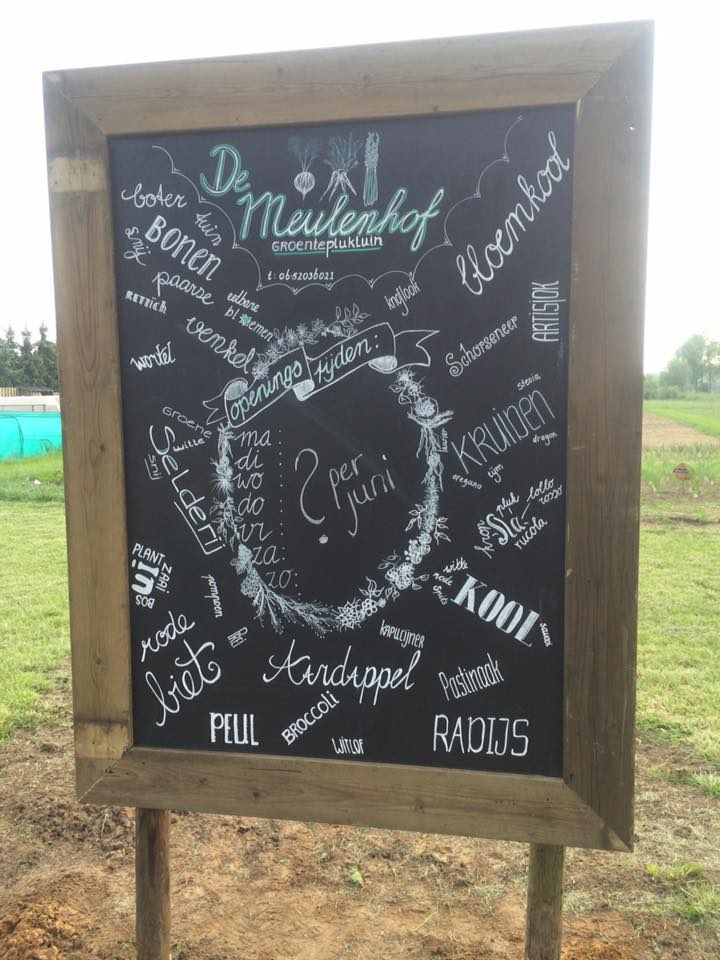 De
Meulenhof
GROENTEPLUKTUIN
t: 0652036021
boter
tuin
BONEN
snij
paarse
RETTICH
eetbare
bloemen
knoflook
bloemkool
venkel
wortel
ARTISJOK
Schorseneer
openings tijden:
ma :
di :
wo :
do :
vr :
za :
zo :
? per
juni
groene
witte
Selderij
snij
stevia
laurier
KRUIDEN
dragon
tijm
oregano
pluk
lollo
rosso
Sla
rucola
PLANT
ZAAI
UI
BOS
pompoen
prei
witte
rode
spits
KOOL
savooi
rode
biet
KAPUCIJNER
Aardappel
Pastinaak
PEUL
BROCCOLI
WITLOF
RADIJS